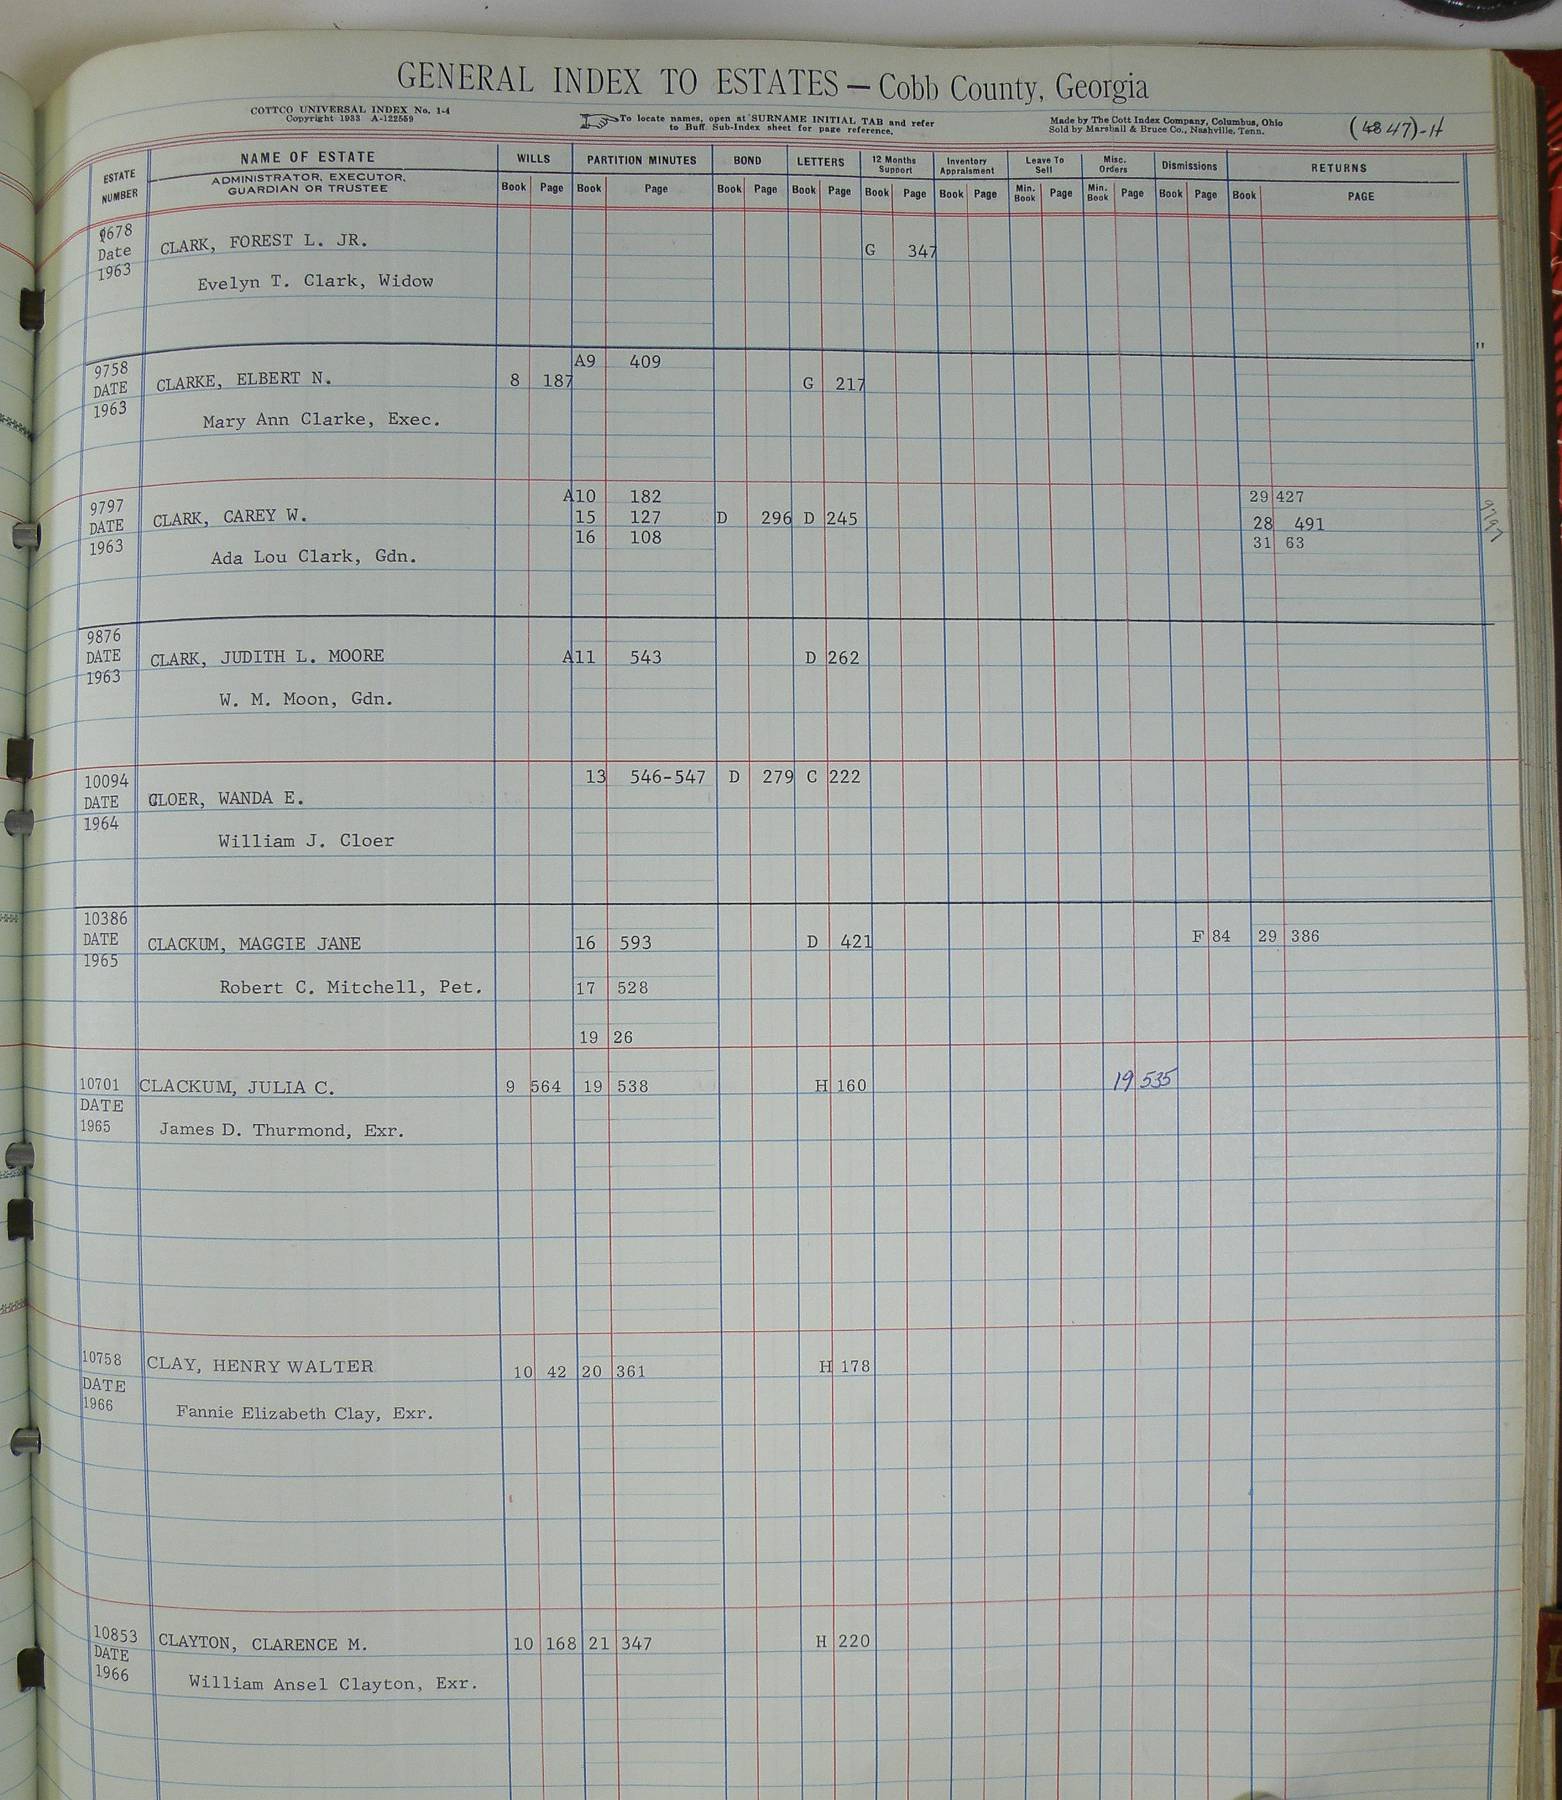 GENERAL INDEX TO ESTATES — Cobb County, Georgia
COTTCO UNIVERSAL INDEX No. 1-4
Copyright 1933 A-122559
To locate names, open at SURNAME INITIAL TAB and refer
to Buff Sub-Index sheet for page reference.
Made by The Cott Index Company, Columbus, Ohio
Sold by Marshall & Bruce Co., Nashville, Tenn.
47)-H
ESTATE NUMBER
NAME OF ESTATE
ADMINISTRATOR, EXECUTOR,
GUARDIAN OR TRUSTEE
WILLS PARTITION MINUTES BOND LETTERS 12 Months Support Inventory Appraisment Leave To Sell Misc. Orders Dismissions RETURNS
Book Page Book Page Book Page Book Page Book Page Book Page Min. Book Page Min. Book Page Book Page Book PAGE
9678
Date CLARK, FOREST L. JR. G 347
1963
Evelyn T. Clark, Widow
"
9758 A9 409
DATE CLARKE, ELBERT N. 8 187 G 217
1963
Mary Ann Clarke, Exec.
9797 A10 182 29 427
DATE CLARK, CAREY W. 15 127 D 296 D 245 28 491
1963 16 108 31 63
Ada Lou Clark, Gdn.
9797
9876
DATE CLARK, JUDITH L. MOORE A11 543 D 262
1963
W. M. Moon, Gdn.
10094 13 546-547 D 279 C 222
DATE CLOER, WANDA E.
1964
William J. Cloer
10386
DATE CLACKUM, MAGGIE JANE 16 593 D 421 F 84 29 386
1965
Robert C. Mitchell, Pet. 17 528
19 26
10701 CLACKUM, JULIA C. 9 564 19 538 H 160 19 535
DATE
1965 James D. Thurmond, Exr.
10758 CLAY, HENRY WALTER 10 42 20 361 H 178
DATE
1966 Fannie Elizabeth Clay, Exr.
10853 CLAYTON, CLARENCE M. 10 168 21 347 H 220
DATE
1966 William Ansel Clayton, Exr.